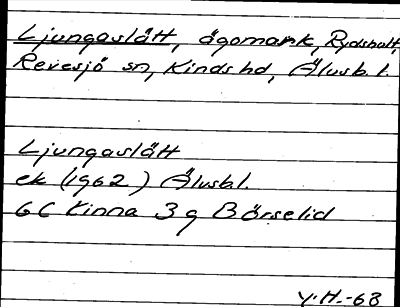 Ljungaslätt, ägomark, Rydshult,
Revesjö sn, Kinds hd, Älvsb. l.
Ljungaslätt
ek (1962) Älvsbl.
6 C Kinna 3 g Börselid
Y.H.-63